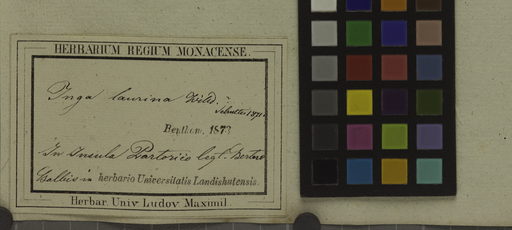 HERBARIUM REGIUM MONACENSE.
Inga laurina Willd.
Benth. 1873
In Insula Portorico legt. Bertero
Balbis in herbario Universitatis Landishutensis.
Herbar. Univ. Ludov. Maximil.